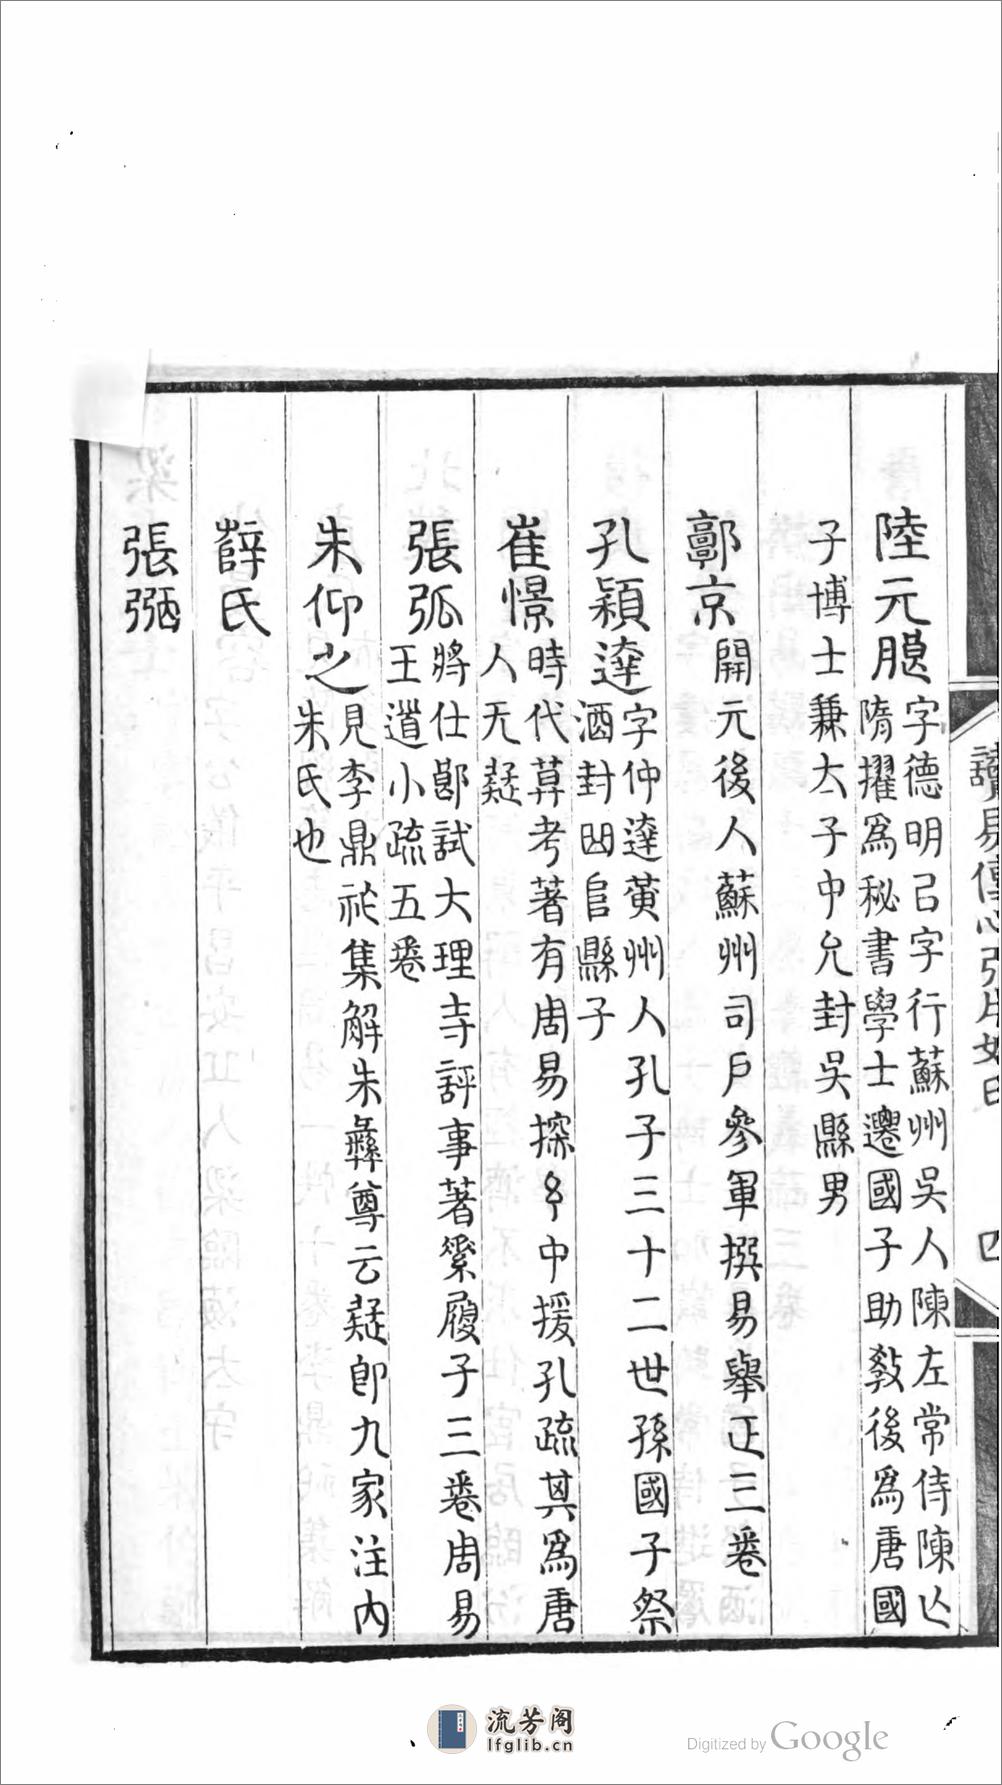 陸元朖字德明已字行蘇州吳人陳左常侍陳亾
隋擢爲秘書學士遷國子助敎後爲唐國
子博士兼太子中允封吳縣男
郭京開元後人蘇州司戶參軍撰易舉正三卷
孔穎達字仲達黄州人孔子三十二世孫國子祭
酒封曲阜縣子
崔憬時代莫考著有周易探中援孔疏其爲唐
人无疑
張弧將仕郎試大理寺評事著素履子三卷周易
王道小疏五卷
朱仰之見李鼎祚集解朱彝尊云疑卽九家注内
朱氏也
薛氏
張弨
讀易傳心
四
流芳阁
lfglib.cn
Digitized by Google